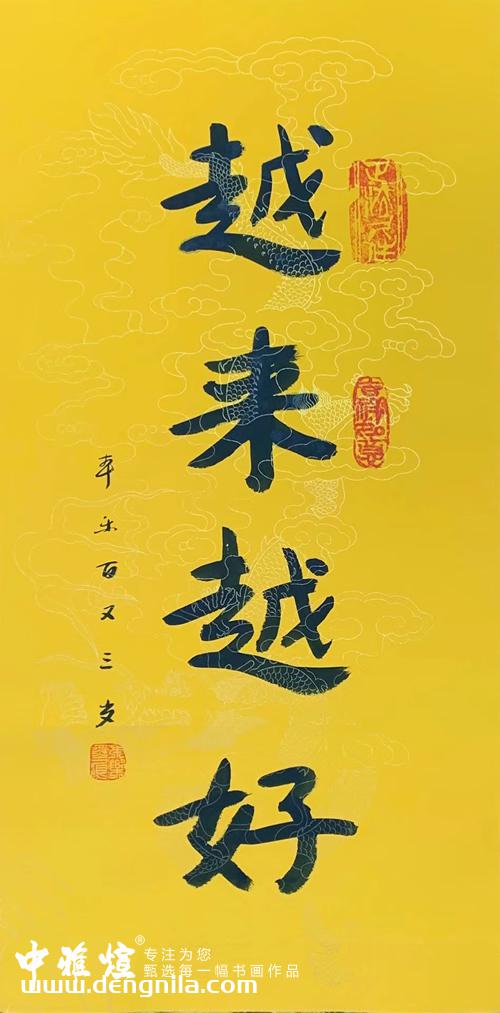 越来越好
吉祥如意
本乐百又三岁
中雅煊®
专注为您
甄选每一幅书画作品
www.dengnila.com